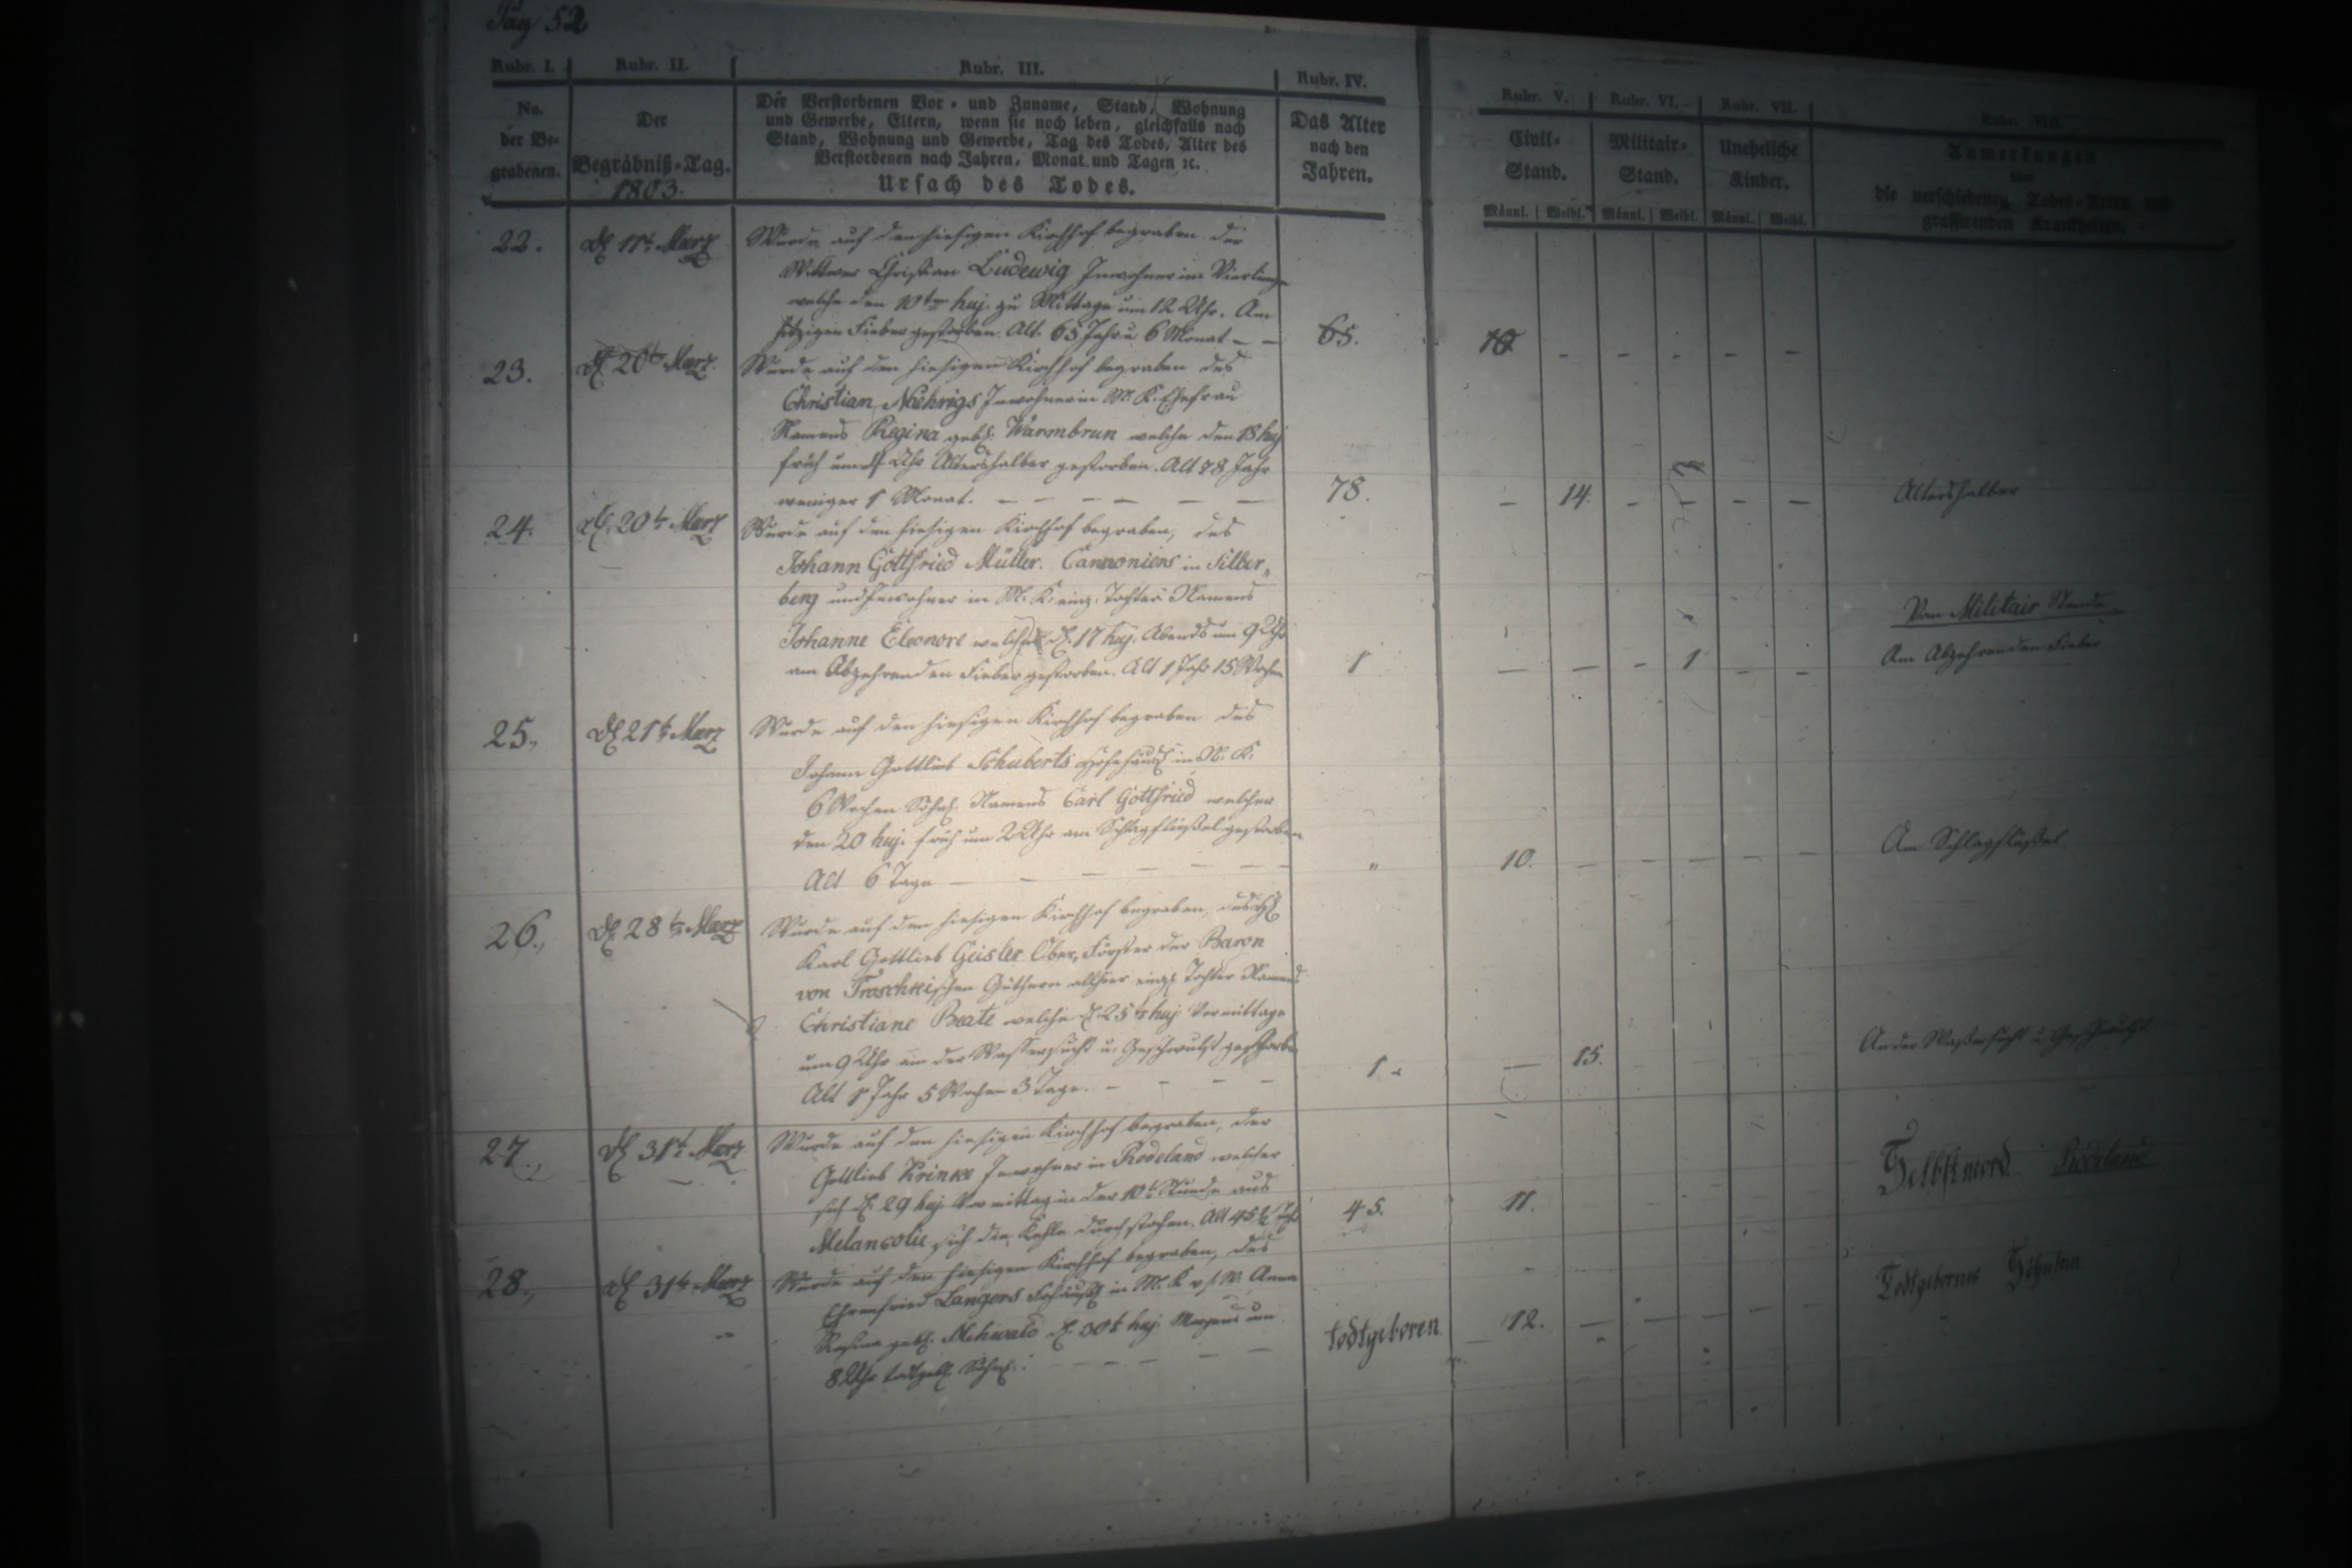 Pag 52
Rubr. I. Rubr. II. Rubr. III. Rubr. IV. Rubr. V. Rubr. VI. Rubr. VII. Rubr. VIII.
No. der Be- grabenen.
Der Begräbniß-Tag. 1803.
Der Verstorbenen Vor- und Zuname, Stand, Wohnung
und Gewerbe, Eltern, wenn sie noch leben, gleichfalls nach
Stand, Wohnung und Gewerbe, Tag des Todes, Alter des
Verstorbenen nach Jahren, Monat und Tagen ꝛc.
Ursach des Todes.
Das Alter nach den Jahren.
Civil- Stand.
Militair- Stand.
Uneheliche Kinder.
Anmerkungen
über
die verschiedenen Todes-Arten und
grassirenden Krankheiten.
Männl. Weibl. Männl. Weibl. Männl. Weibl.
22. d. 11t. Merz Wurde auf den hiesigen Kirchhof begraben der
Wittwer Christian Ludewig Inwohner in
welcher den 10ten huj. zu Mittage um 12 Uhr. Am
hitzigen Fieber gestorben. Alt. 65 Jahr u. 6 Monat – – 65. 10 - - - - -
23. d. 20t. Merz. Wurde auf den hiesigen Kirchhof begraben des
Christian Naehrigs Inwohner in M. K. Ehefrau
Namens Regina geb. Warmbrun welche den 18 huj
früh um Uhr Altershalber gestorben. Alt 78 Jahr
weniger 1 Monat. – – – – – – 78. – 14. – – – Altershalber
24. d. 20t. Merz Wurde auf den hiesigen Kirchhof begraben, des
Johann Gottfried Müller. Cannoniers in Silber„
berg und Inwohner in M. K. einz. Tochter Namens Vom Militair Stande
Johanne Eleonore welche d. 17 huj. Abends um 9 Uhr
am Abzehrenden Fieber gestorben. Alt 1 Jahr 15 Wochen 1 – – – 1 – – Am Abzehrenden Fieber
25. d. 21t. Merz Wurde auf den hiesigen Kirchhof begraben des
Johann Gottlieb Schuberts in N. K.
6 Wochen Söhnl. Namens Carl Gottfried welcher
den 20 huj. früh um 2 Uhr am Schlagflüßel gestorben
Alt 6 Tage – – – – – – " 10. – – – – – Am Schlagflüßel.
26. d. 28t. Merz Wurde auf den hiesigen Kirchhof begraben, des H.
Karl Gottlieb Geisler Ober, Förster der Baron
von Troschkeischen Güthern allhier einzg. Tochter Namens
Christiane Beate welche d. 25t. huj Vormittage
um 9 Uhr an der Wassersucht u. Geschwulst gestorben
Alt 1 Jahr 5 Wochen 3 Tage. – – – – 1. – 15. An der Wassersucht u. Geschwulst
27. d. 31t. Merz Wurde auf den hiesigen Kirchhof begraben, der
Gottlieb Krinke Inwohner in Rodeland welcher
sich d. 29 huj. Vormittag in der 10t. Stunde aus
Melancolie sich die Kehle durchstochen. Alt 45½ Jahr 45. 11. Selbstmord. Rodeland
28. d. 31t. Merz Wurde auf den hiesigen Kirchhof begraben, des
Ehrenfried Langers in M. K. Anna
Rosina geb. Mehwald d. 30t. huj. Morgens um
8 Uhr todtgeb. Söhnl. – – – – – todtgeboren 12. – – – – – Todtgebornes Söhnlein